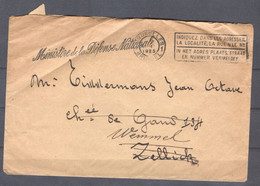 INDIQUEZ DANS VOS ADRESSES
LA LOCALITE, LA RUE & LE N°
IN HET ADRES PLAATS, STRAAT
EN NUMMER VERMELDEN
Ministère de la Défense Nationale
Mr. Timmermans Jean Octave
Ch: ée de Gand
Wemmel
Zellick